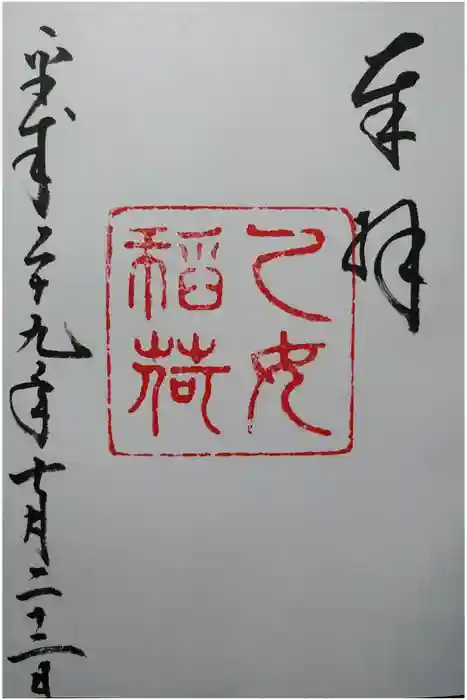 奉拝
乙女
稲荷
平成二十九年十月二十三日